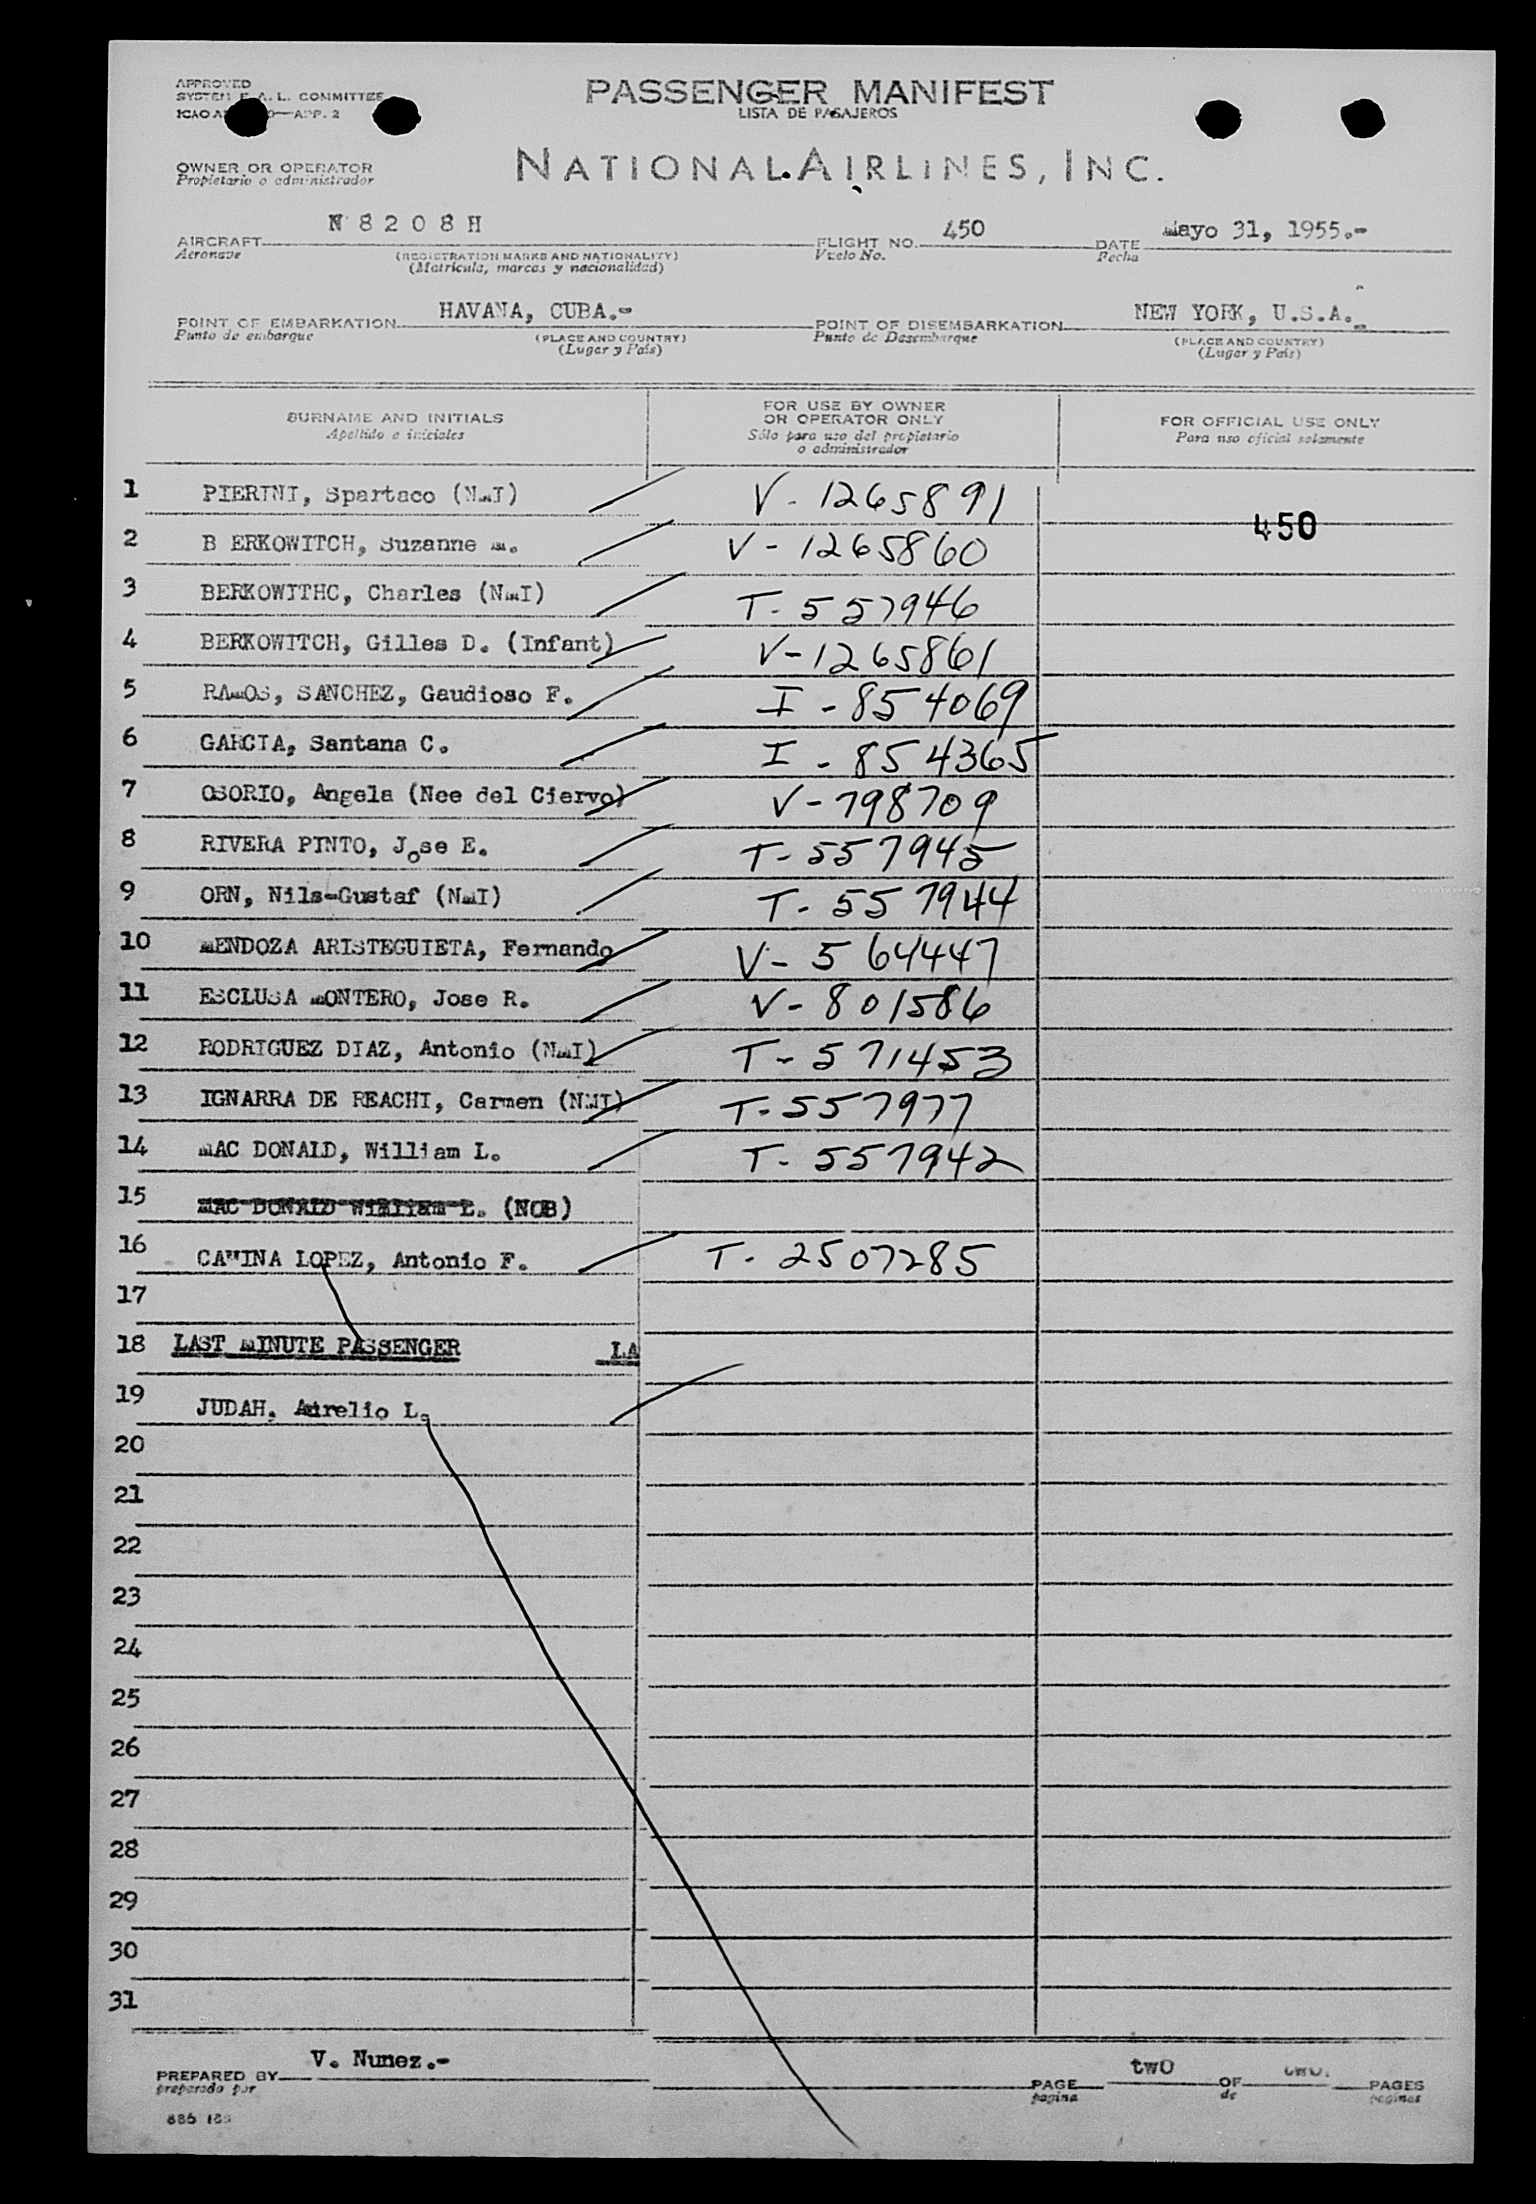 APPROVED
SYSTEM F. A. L. COMMITTEE
ICAO A  —APP. 2
PASSENGER MANIFEST
LISTA DE PASAJEROS
OWNER OR OPERATOR
Propietario o administrador
NATIONAL AIRLINES, INC.
AIRCRAFT N 8 2 0 8 H FLIGHT NO. 450 DATE Mayo 31, 1955.-
Aeronave (REGISTRATION MARKS AND NATIONALITY) Vuelo No. Fecha
(Matricula, marcas y nacionalidad)
POINT OF EMBARKATION HAVANA, CUBA.- POINT OF DISEMBARKATION NEW YORK, U.S.A.-
Punto de embarque (PLACE AND COUNTRY) Punto de Desembarque (PLACE AND COUNTRY)
(Lugar y País) (Lugar y País)
SURNAME AND INITIALS FOR USE BY OWNER OR OPERATOR ONLY FOR OFFICIAL USE ONLY
Apellido e iniciales Sólo para uso del propietario o administrador Para uso oficial solamente
1 PIERINI, Spartaco (NMI) V - 1265891
450
2 B ERKOWITCH, Suzanne M. V - 1265860
3 BERKOWITHC, Charles (NMI) T - 557946
4 BERKOWITCH, Gilles D. (Infant) V - 1265861
5 RAMOS, SANCHEZ, Gaudioso F. I - 854069
6 GARCIA, Santana C. I - 854365
7 OSORIO, Angela (Nee del Ciervo) V - 798709
8 RIVERA PINTO, Jose E. T - 557945
9 ORN, Nils-Gustaf (NMI) T - 557944
10 MENDOZA ARISTEGUIETA, Fernando V - 564447
11 ESCLUSA MONTERO, Jose R. V - 801586
12 RODRIGUEZ DIAZ, Antonio (NMI) T - 571453
13 IGNARRA DE REACHI, Carmen (NMI) T - 557977
14 MAC DONALD, William L. T - 557942
15 MAC DONALD William L. (NOB)
16 CAMINA LOPEZ, Antonio F. T - 2507285
17
18 LAST MINUTE PASSENGER LA
19 JUDAH, Aurelio L.
20
21
22
23
24
25
26
27
28
29
30
31
PREPARED BY V. Nunez.- PAGE two OF two. PAGES
preparado por pagina de paginas